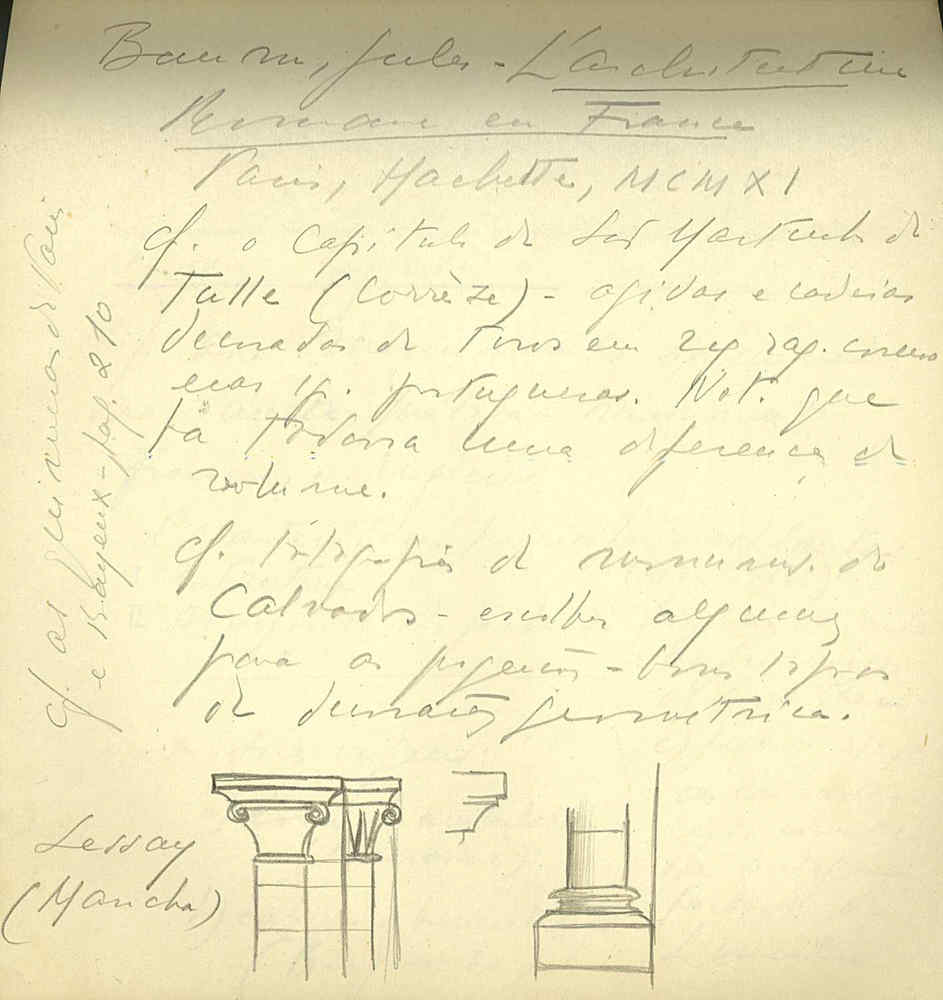 Baum, Jules - L'architecture
Romane en France
Paris, Hachette, MCMXI
Cf. o capitulo de
Tulle (Corrèze) - ogivas e cadeias
decoradas de toros em zig zag. como
portuguesas. Not. que
há todavia uma diferença de
volume.
Cf. fotografias de de
Calvados - escolher algumas
para as - bons tipos
de decoração geometrica.
Cf. as de
e Bayeux - pag. 210
Lessay
(Mancha)